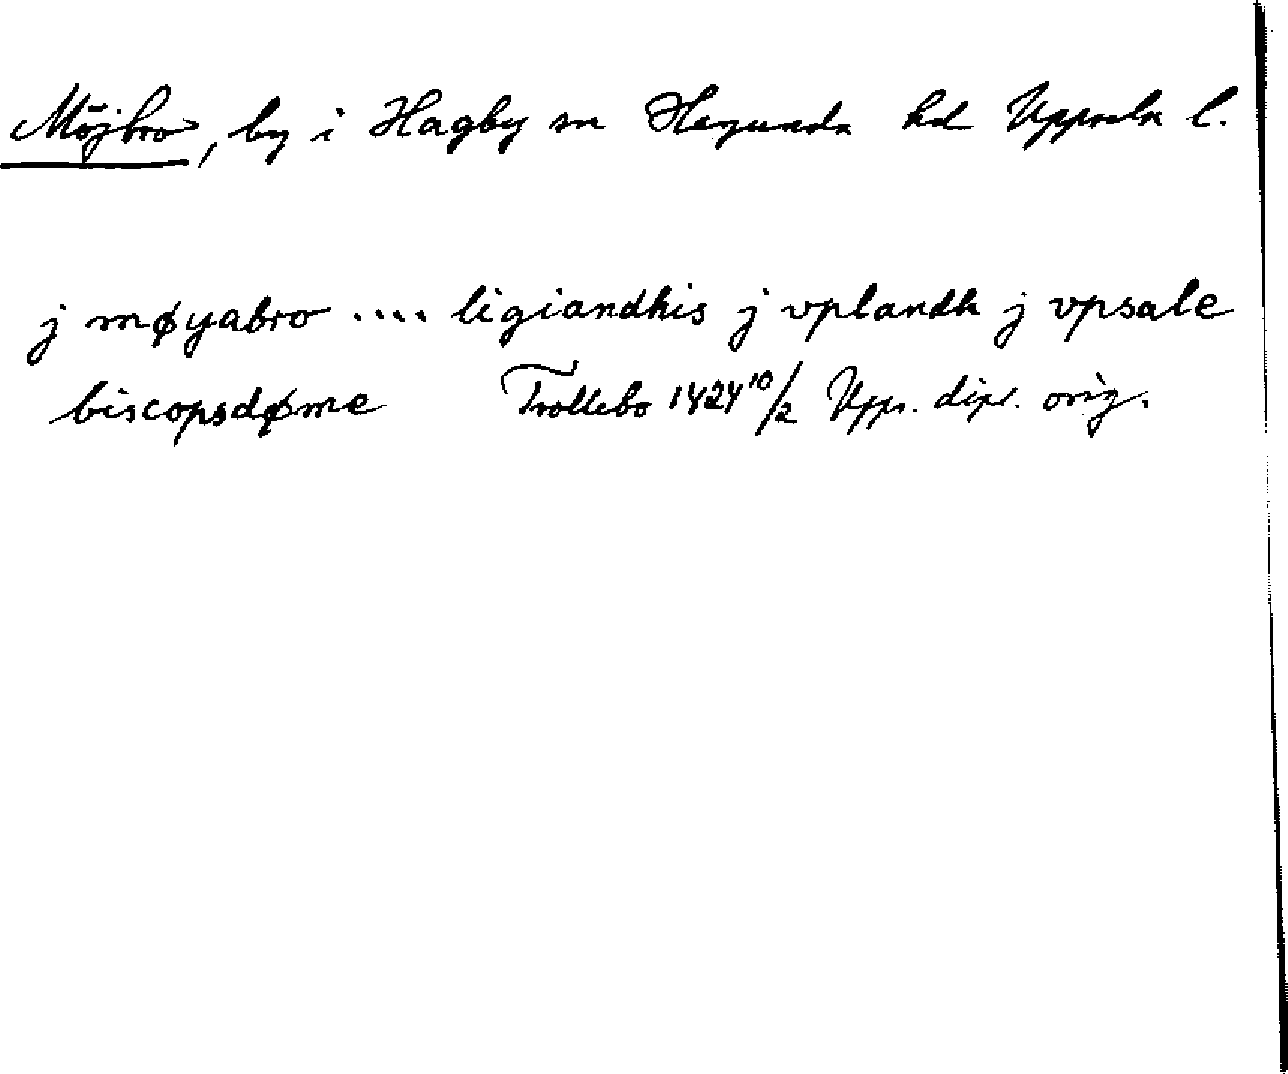 Möjbro, by i Hagby sn Hagunda hd Uppsala l.
j møyabro .... ligiandhis j vplandh j vpsale
biscopsdøme Trollebo 1424 10/2 Upps. dipl. orig.